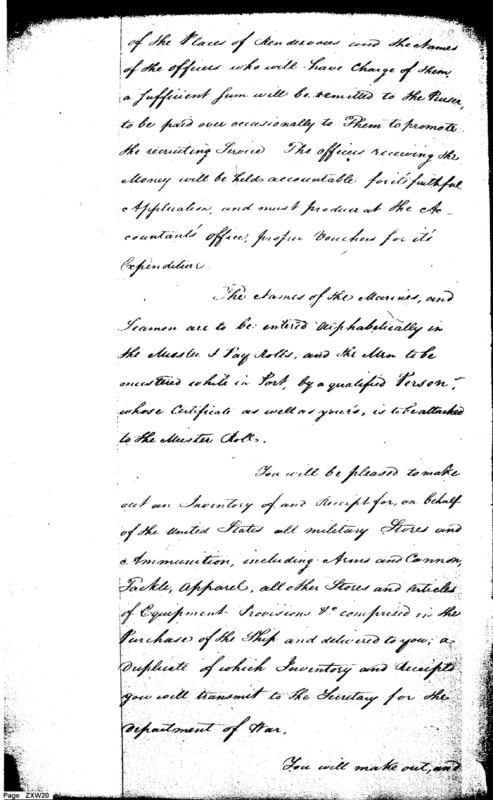 of the Places of Rendezvous and the Names
of the officers who will have Charge of them
a sufficient sum will be remitted to the Purser,
to be paid over occasionally to Them to promote
the recruiting Service The officers receiving the
Money will be held accountable for it's faithful
Application, and must produce at the Ac-
countants office, proper Vouchers for it's
Expenditure.
The Names of the Marines, and
Seamen are to be entered Alphabetically in
the Muster & Pay Rolls, and the Men to be
mustered while in Port, by a qualified Person,
whose Certificate as well as your's, is to be attached
to the Muster Rolls.
You will be pleased to make
out an Inventory of and Receipt for, on behalf
of the United States all military Stores and
Ammunition, including Arms and Cannon,
Tackle, Apparel, all other Stores and articles
of Equipment Provisions &c comprised in the
Purchase of the Ship and delivered to you; a
Duplicate of which Inventory and Receipts
you will transmit to the Secretary for the
Department of War.
You will make out, and
Page ZXW20